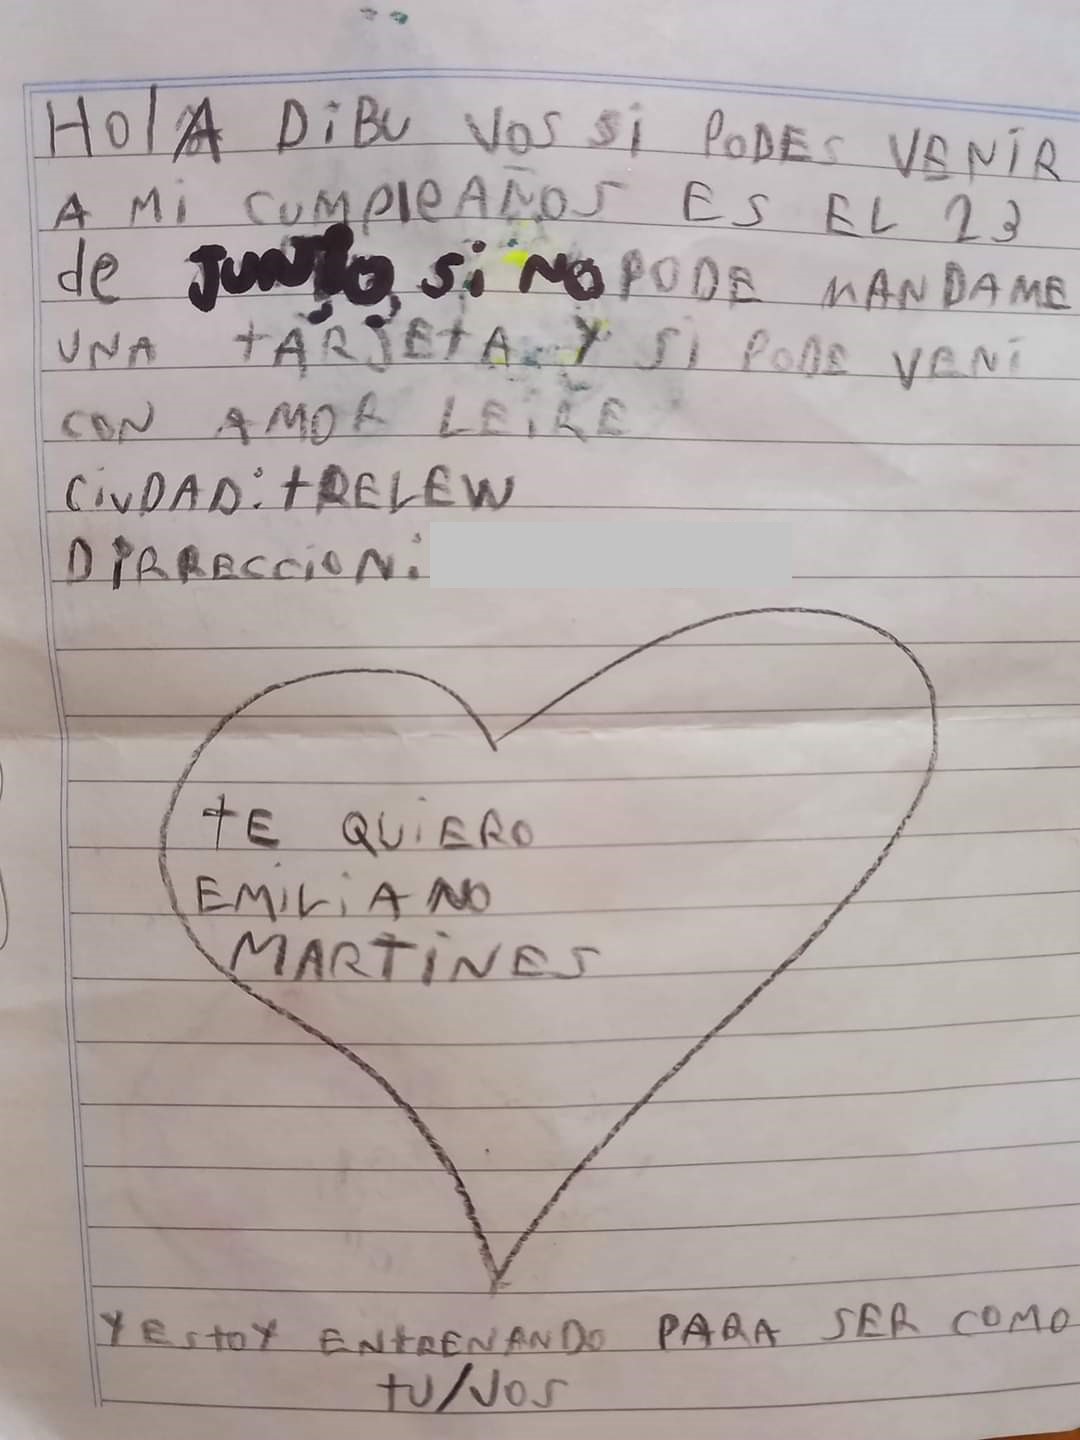 HolA DiBU VOS Si PODES VENIR
A Mi CUMPleAÑOS ES EL 23
de JUNIO, Si NO PODE MANDAME
UNA tARJEtA Y Si PODE VENi
CON AMOR LEiRE
CiUDAD: tRELEW
DiRRECCiON:
tE QUiERO
EMiLiANO
MARTiNES
Y EStOY ENtRENANDO PARA SER COMO
tU/VOS